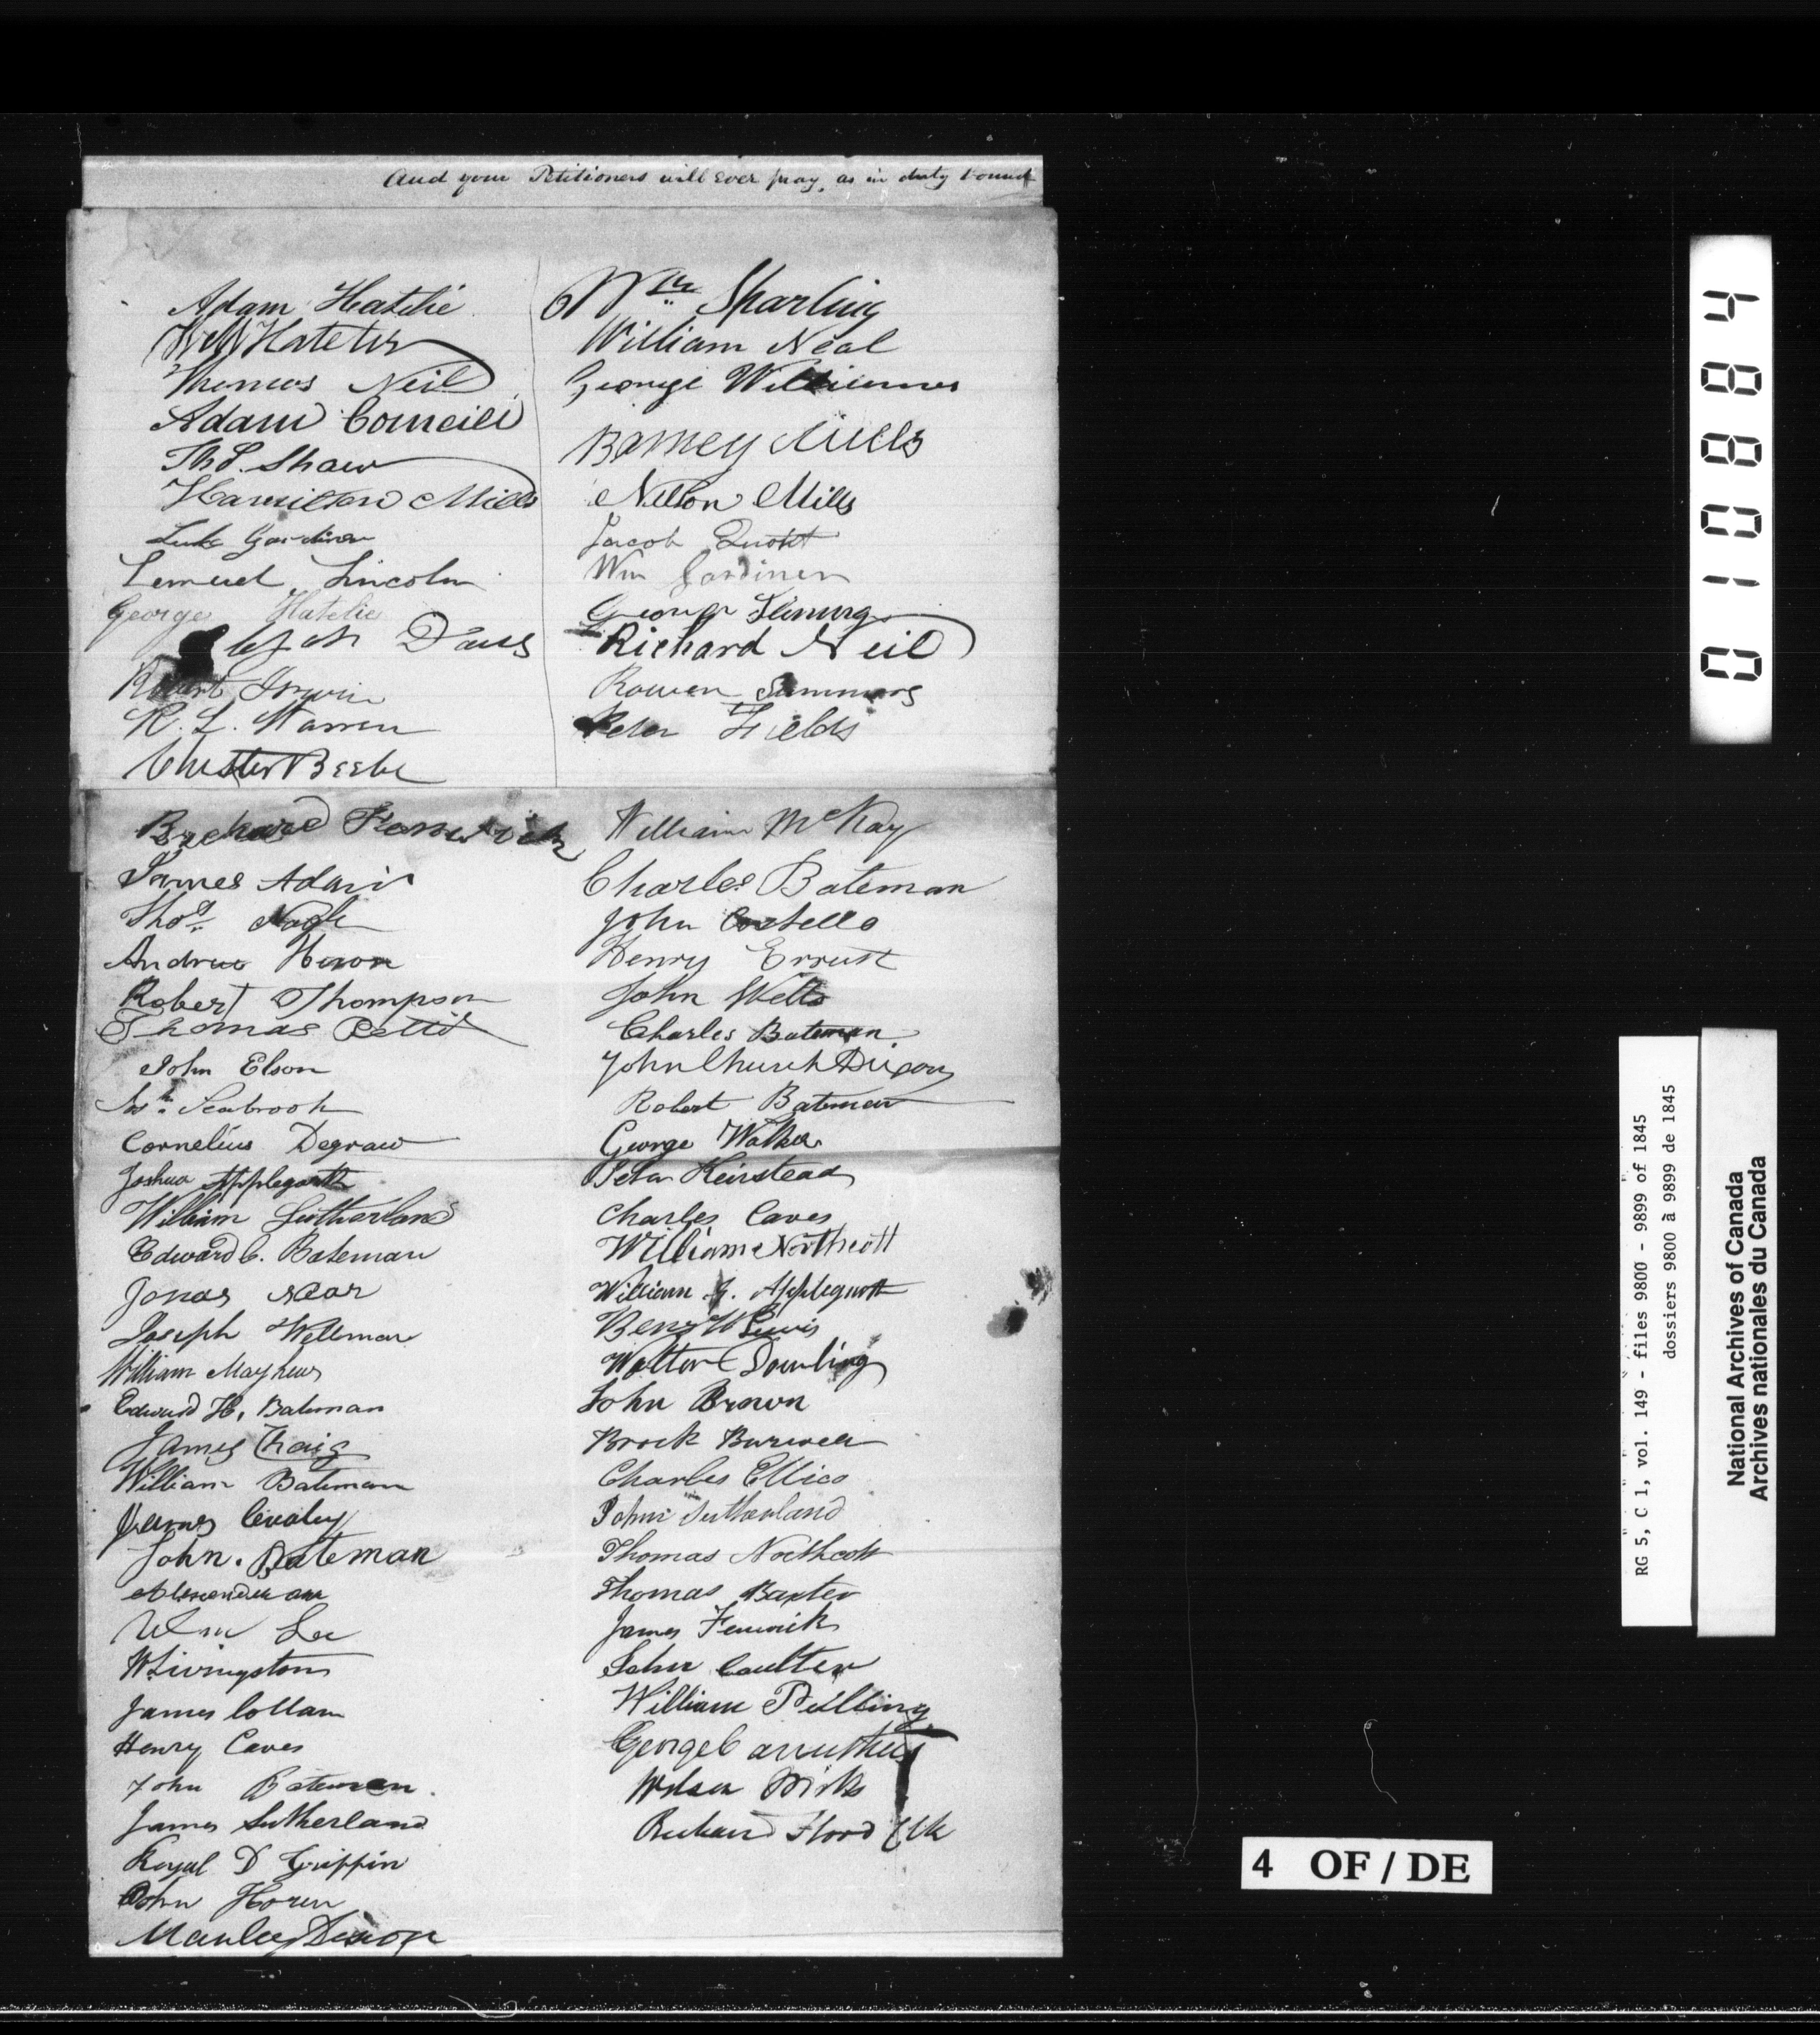 And your Petitioners will ever pray, as in duty bound
Adam Hatelie
Hatelie
Thomas Neil
Adam Conneill
Thos. Shaw
Hamilton Mills
Luke Gardiner
Lemuel Lincoln
George Hatelie
Davis
Robert Irwin
R. L. Warren
Chester Beebe
Wm Sparling
William Neal
George Williams
Barney Mills
Nelson Mills
Jacob
Wm Gardiner
George Fleming
Richard Neil
Rowen Summers
Peter Fields
Richard Fenwick
James Adair
Thos. Nagle
Andrew Heron
Robert Thompson
Thomas Pettit
John Elson
Seabrook
Cornelius Degraw
Joshua Applegarth
William Sutherland
Edward C. Bateman
Jonas Near
Joseph Wellman
William Mayhew
Edward H. Bateman
James Craig
William Bateman
James
John. Bateman
Alexander
Wm Lee
W. Livingston
James Collam
Henry Caves
John Bateman.
James Sutherland
Royal D Griffin
John Horen
Manley Dixon
William McKay
Charles Bateman
John Costello
Henry Errust
John Wells
Charles Bateman
John Church Dixon
Robert Bateman
George Walker
Peter Keirstead
Charles Caves
William Northcott
William G. Applegarth
Benj W Lewis
Walter Dowling
John Brown
Brock Burwell
Charles Ellice
John Sutherland
Thomas Northcott
Thomas Baxter
James Fenwick
John Coulter
William Pulling
George Carruthers
Wilson Mirks
Richard Flood Clk
010884
RG 5, C 1, vol. 149 - files 9800 - 9899 of 1845
dossiers 9800 à 9899 de 1845
National Archives of Canada
Archives nationales du Canada
4 OF / DE